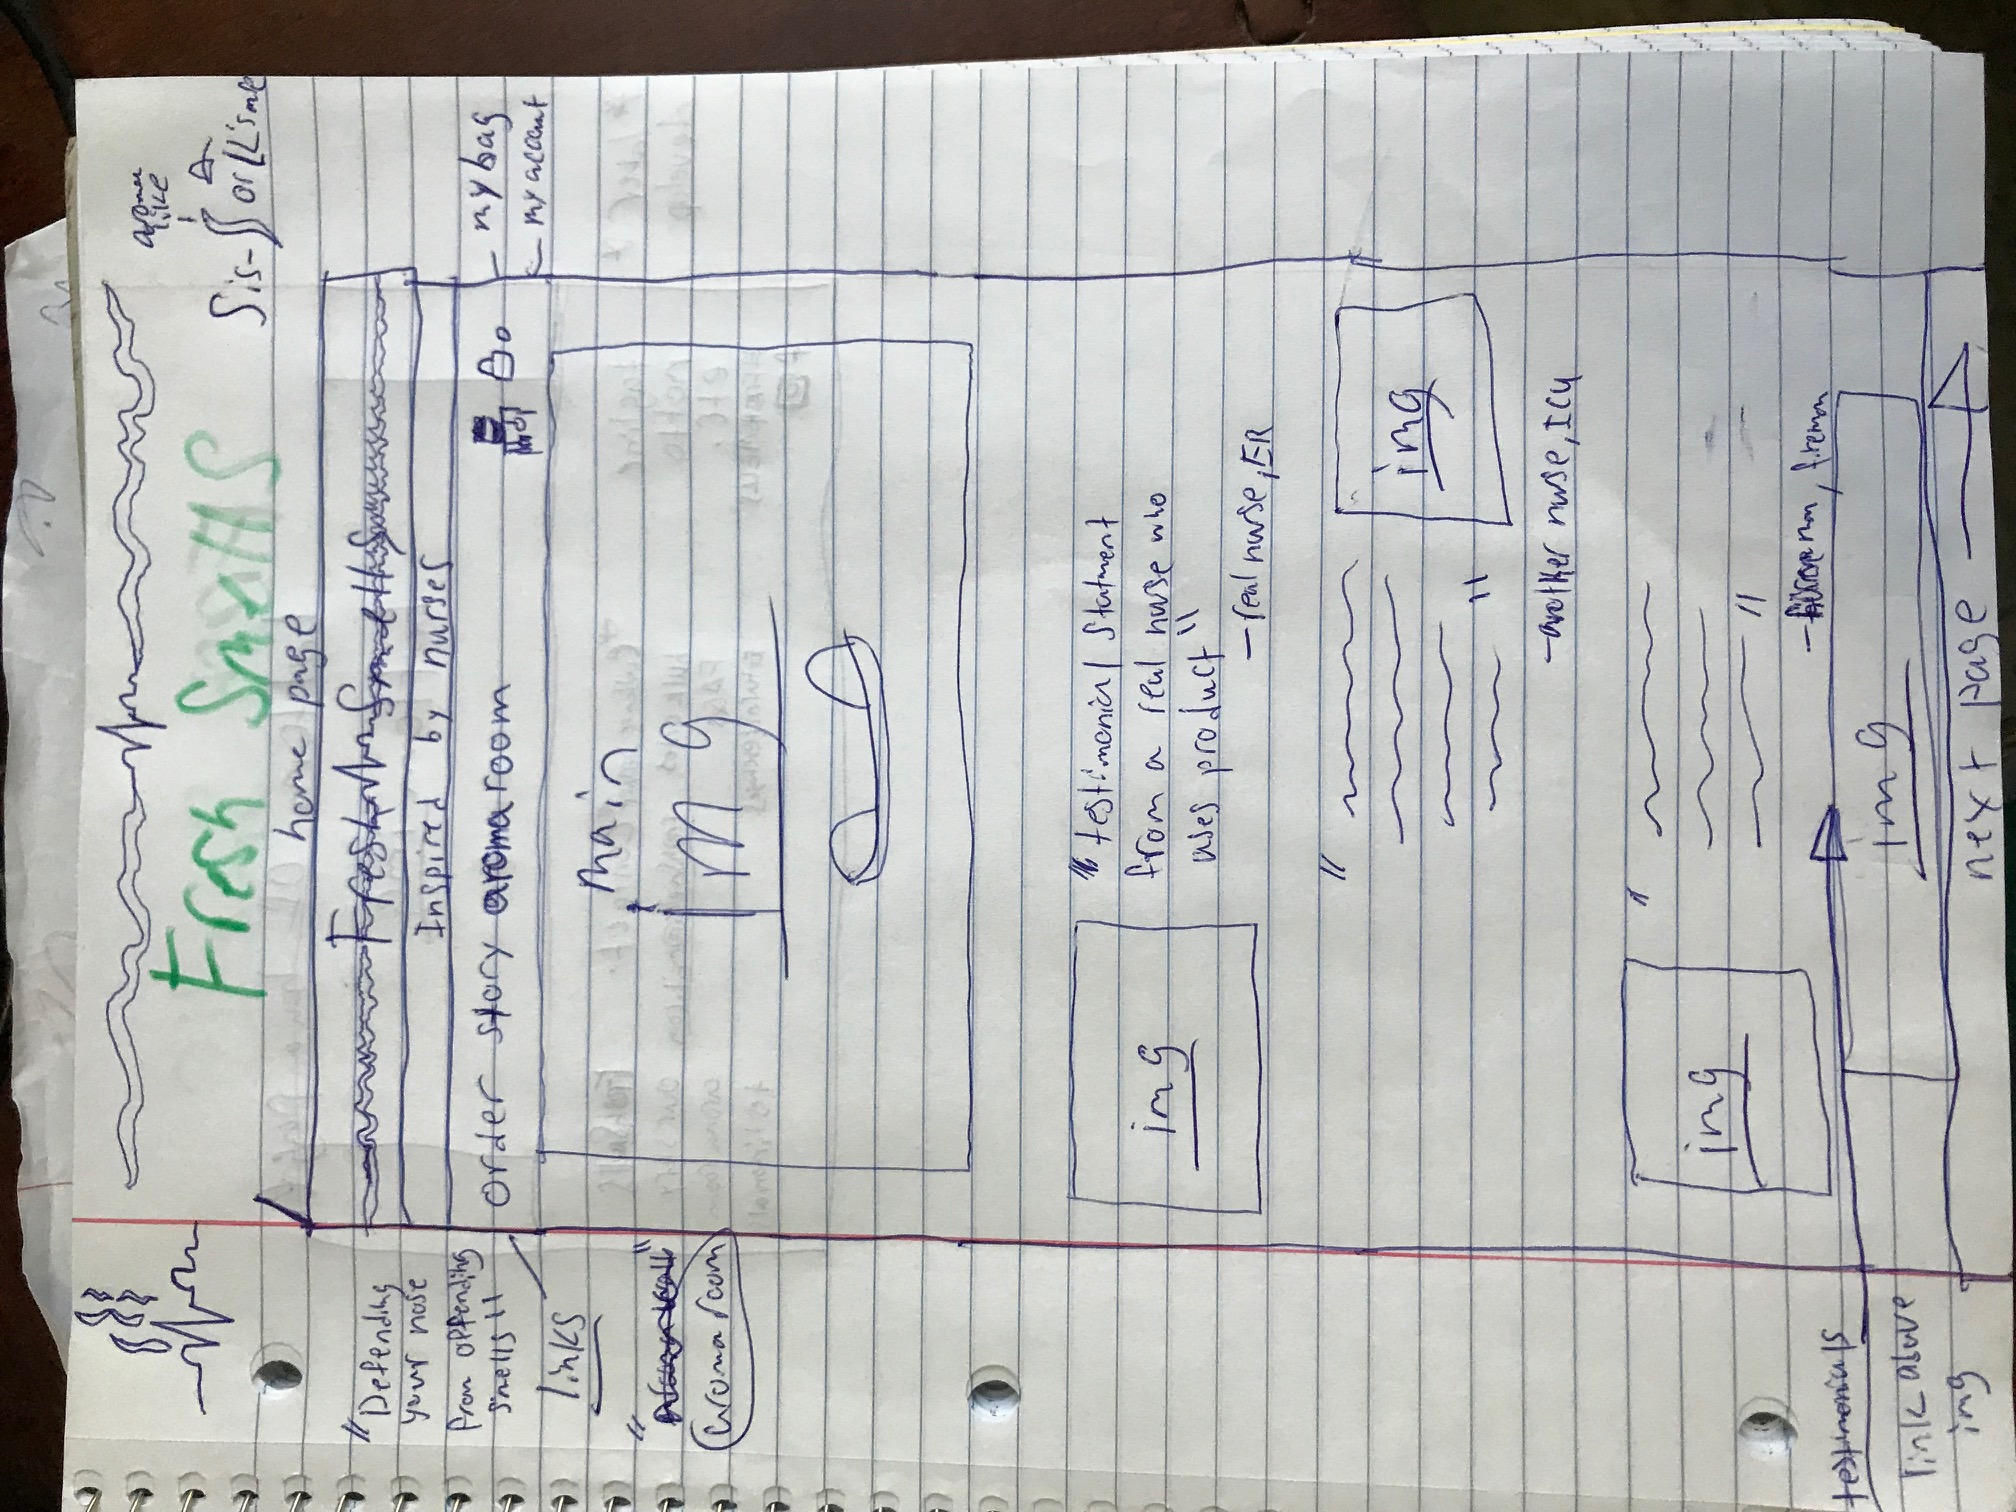 aroma
like
Fresh Smells
Sis-
home page
Fresh Smells
Inspired by nurses
"Defending
your nose
from offending
smells"
order story aroma room
my bag
my account
links
aroma room
main
img
img
"testimonial Statment
from a real nurse who
uses product"
—real nurse, ER
"
img
"
—another nurse, ICU
img
"
"
fireman
testimonials
link above
img
img
next page